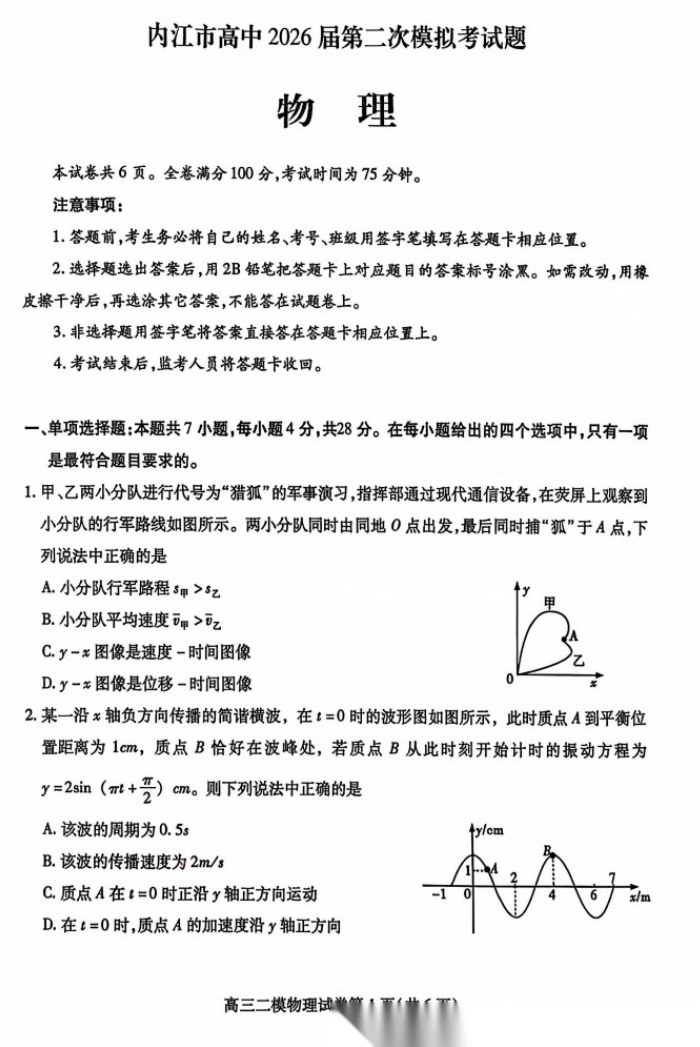 内江市高中 2026 届第二次模拟考试题
物 理
本试卷共 6 页。全卷满分 100 分,考试时间为 75 分钟。
注意事项:
1. 答题前,考生务必将自己的姓名、考号、班级用签字笔填写在答题卡相应位置。
2. 选择题选出答案后,用 2B 铅笔把答题卡上对应题目的答案标号涂黑。如需改动,用橡
皮擦干净后,再选涂其它答案,不能答在试题卷上。
3. 非选择题用签字笔将答案直接答在答题卡相应位置上。
4. 考试结束后,监考人员将答题卡收回。
一、单项选择题:本题共 7 小题,每小题 4 分,共28 分。在每小题给出的四个选项中,只有一项
是最符合题目要求的。
1. 甲、乙两小分队进行代号为“猎狐”的军事演习,指挥部通过现代通信设备,在荧屏上观察到
小分队的行军路线如图所示。两小分队同时由同地 O 点出发,最后同时捕“狐”于 A 点,下
列说法中正确的是
A. 小分队行军路程 s甲 >s乙
B. 小分队平均速度 v̄甲 >v̄乙
C. y-x 图像是速度-时间图像
D. y-x 图像是位移-时间图像
y
甲
A
乙
0
x
2. 某一沿 x 轴负方向传播的简谐横波，在 t=0 时的波形图如图所示，此时质点 A 到平衡位
置距离为 1cm，质点 B 恰好在波峰处，若质点 B 从此时刻开始计时的振动方程为
y=2sin（πt+π/2）cm。则下列说法中正确的是
A. 该波的周期为 0.5s
B. 该波的传播速度为 2m/s
C. 质点 A 在 t=0 时正沿 y 轴正方向运动
D. 在 t=0 时,质点 A 的加速度沿 y 轴正方向
y/cm
B
1
A
2
7
-1
0
4
6
x/m
高三二模物理试卷第 1 页(共 6 页)